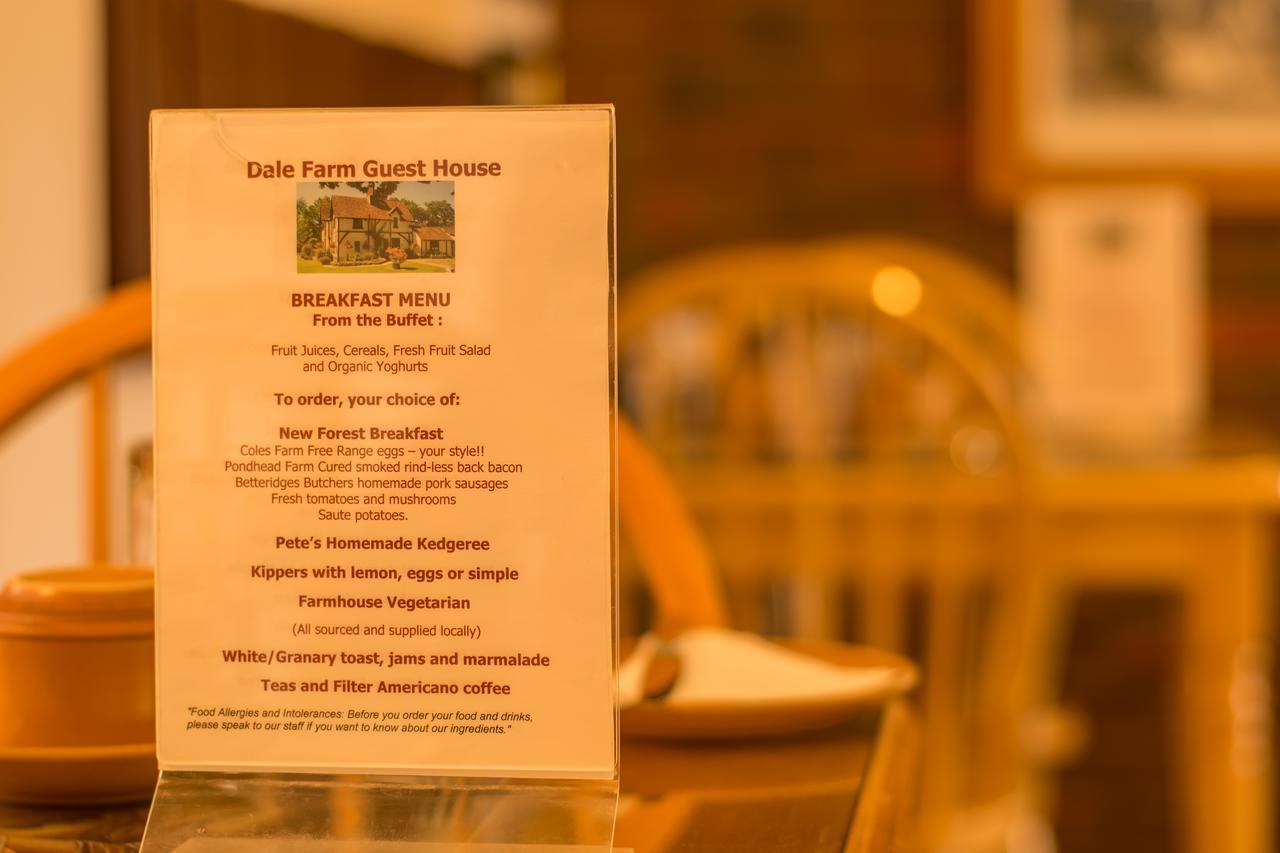 Dale Farm Guest House
BREAKFAST MENU
From the Buffet :
Fruit Juices, Cereals, Fresh Fruit Salad
and Organic Yoghurts
To order, your choice of:
New Forest Breakfast
Coles Farm Free Range eggs – your style!!
Pondhead Farm Cured smoked rind-less back bacon
Betteridges Butchers homemade pork sausages
Fresh tomatoes and mushrooms
Saute potatoes.
Pete's Homemade Kedgeree
Kippers with lemon, eggs or simple
Farmhouse Vegetarian
(All sourced and supplied locally)
White/Granary toast, jams and marmalade
Teas and Filter Americano coffee
"Food Allergies and Intolerances: Before you order your food and drinks,
please speak to our staff if you want to know about our ingredients."